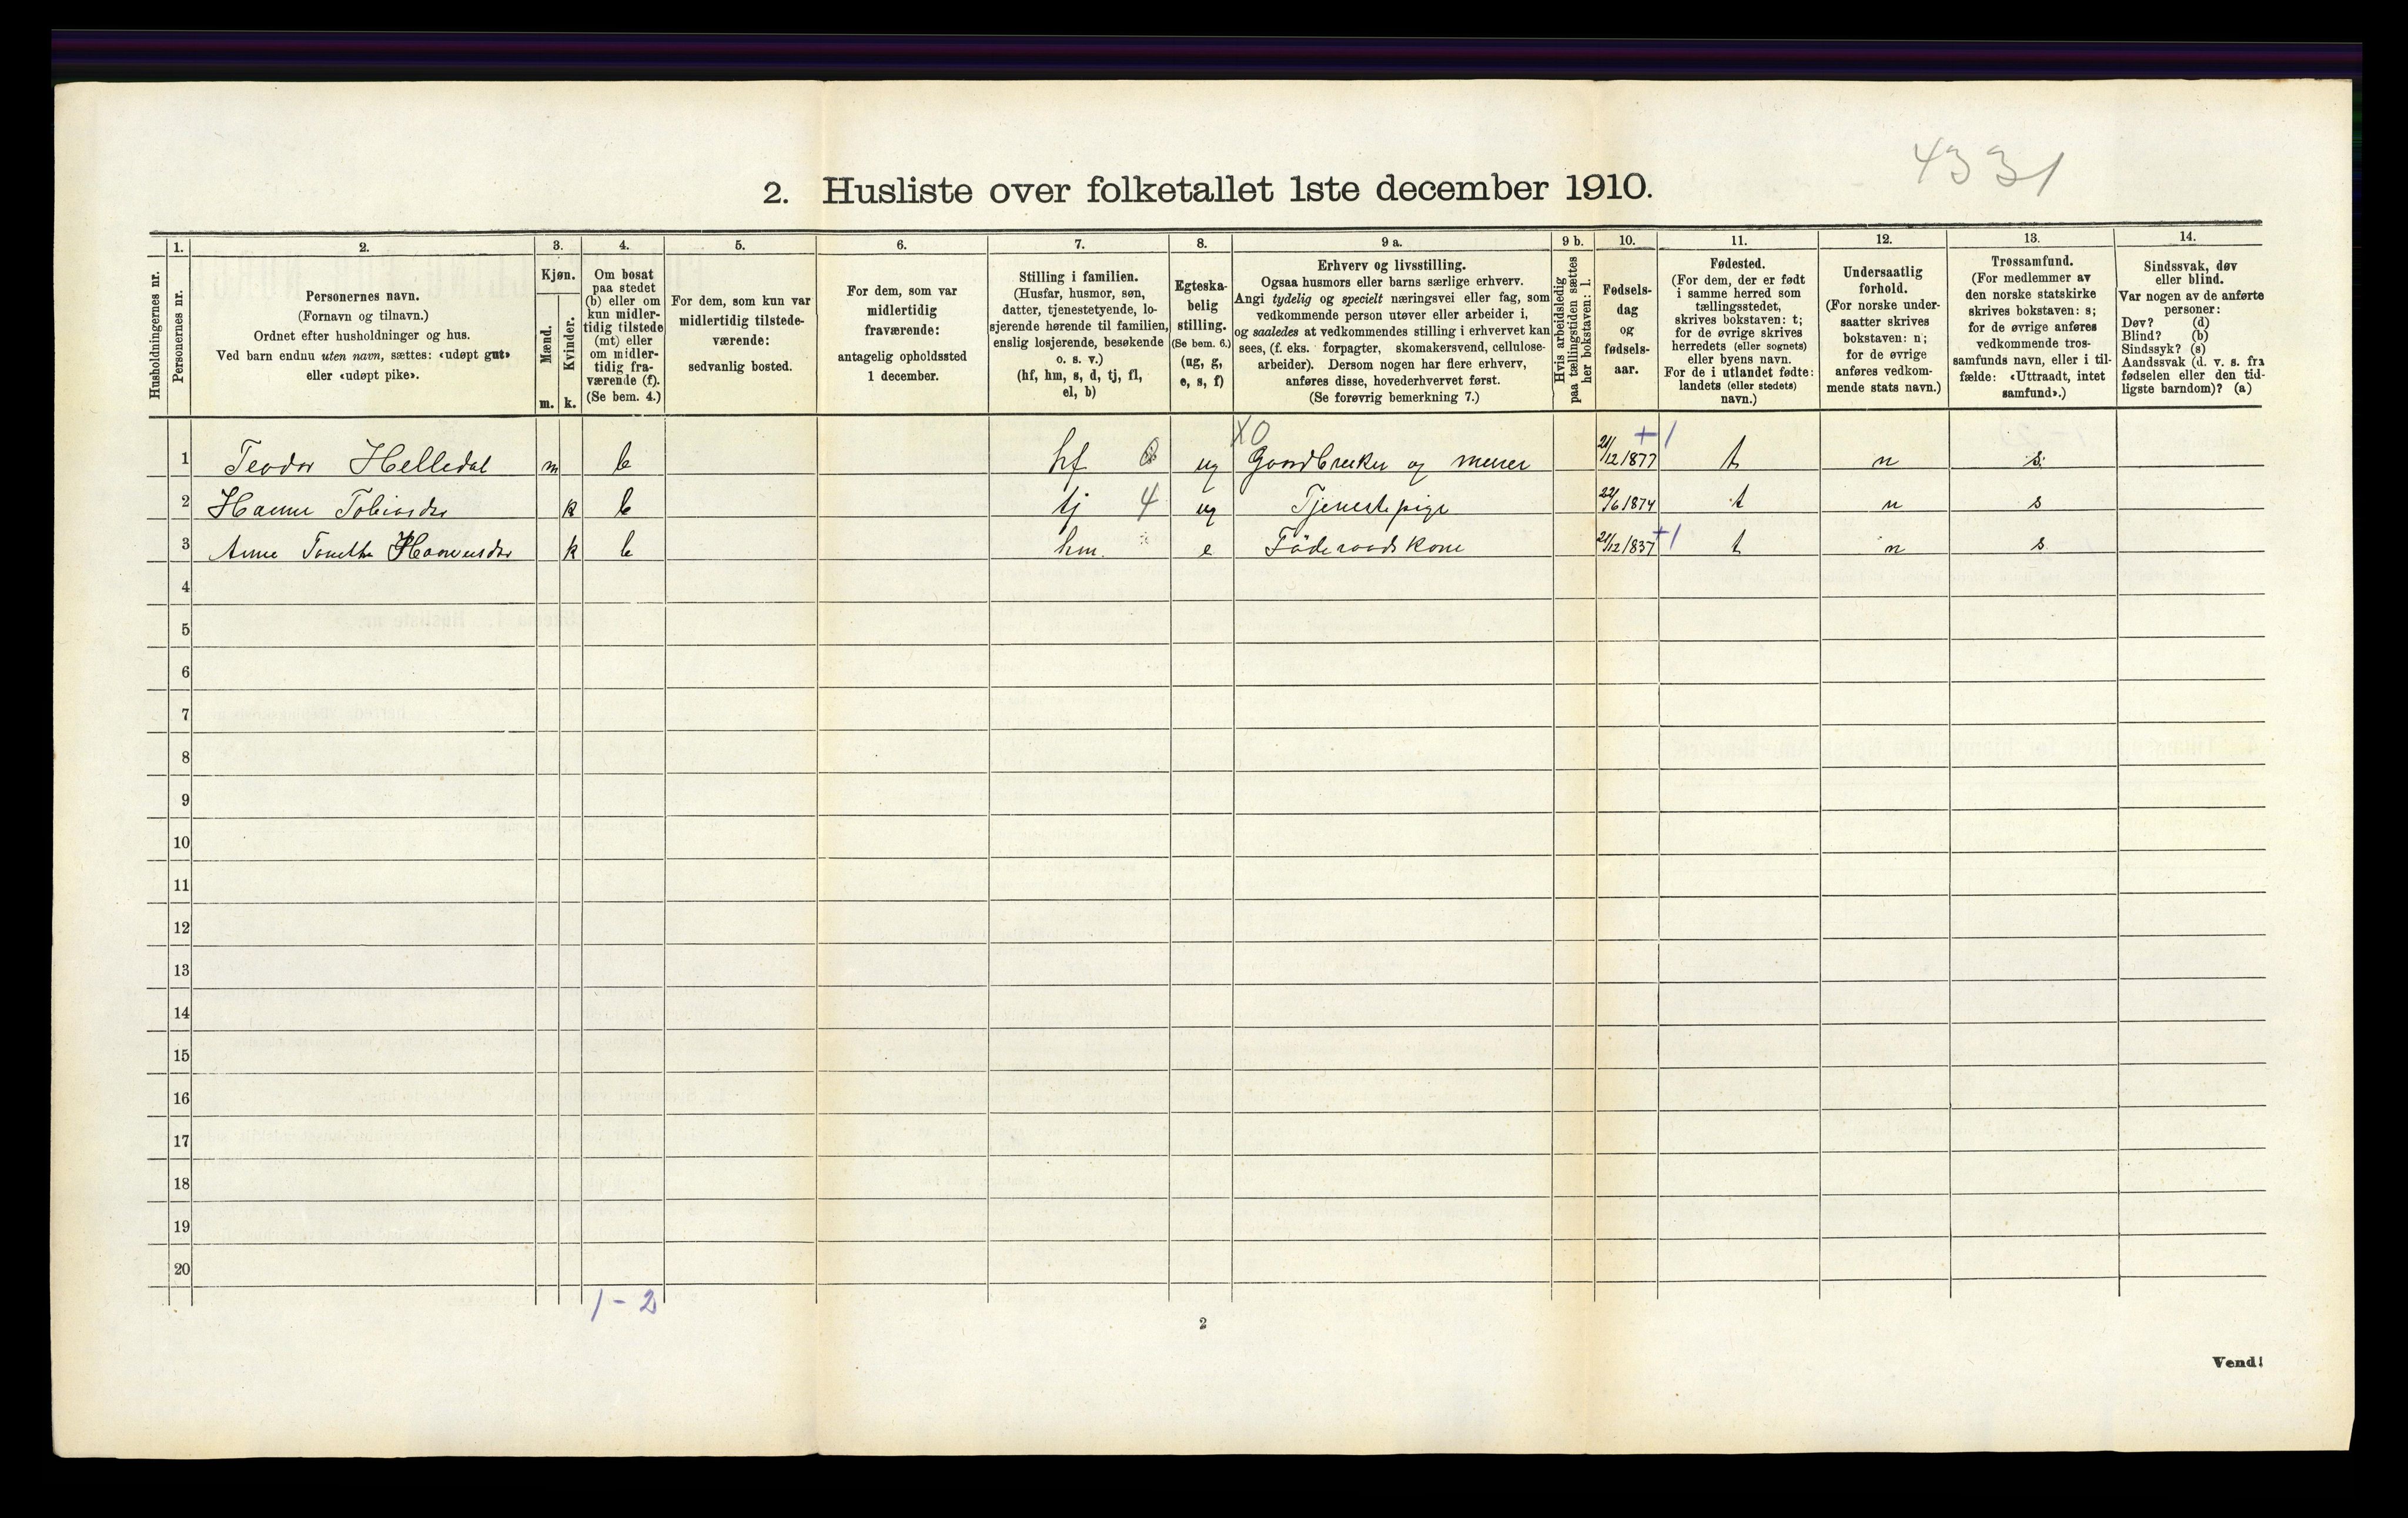 4331
2. Husliste over folketallet 1ste december 1910.
1. 2. 3. 4. 5. 6. 7. 8. 9 a. 9 b. 10. 11. 12. 13. 14.
Husholdningernes nr.
Personernes nr.
Personernes navn.
(Fornavn og tilnavn.)
Ordnet efter husholdninger og hus.
Ved barn endnu uten navn, sættes: «udøpt gut»
eller «udøpt pike».
Kjøn.
Mænd.
Kvinder.
m. k.
Om bosat
paa stedet
(b) eller om
kun midler-
tidig tilstede
(mt) eller
om midler-
tidig fra-
værende (f).
(Se bem. 4.)
For dem, som kun var
midlertidig tilstede-
værende:
sedvanlig bosted.
For dem, som var
midlertidig
fraværende:
antagelig opholdssted
1 december.
Stilling i familien.
(Husfar, husmor, søn,
datter, tjenestetyende, lo-
sjerende hørende til familien,
enslig losjerende, besøkende
o. s. v.)
(hf, hm, s, d, tj, fl,
el, b)
Egteska-
belig
stilling.
(Se bem. 6.)
(ug, g,
e, s, f)
Erhverv og livsstilling.
Ogsaa husmors eller barns særlige erhverv.
Angi tydelig og specielt næringsvei eller fag, som
vedkommende person utøver eller arbeider i,
og saaledes at vedkommendes stilling i erhvervet kan
sees, (f. eks. forpagter, skomakersvend, cellulose-
arbeider). Dersom nogen har flere erhverv,
anføres disse, hovederhvervet først.
(Se forøvrig bemerkning 7.)
Hvis arbeidsledig
paa tællingstiden sættes
her bokstaven: l.
Fødsels-
dag
og
fødsels-
aar.
Fødested.
(For dem, der er født
i samme herred som
tællingsstedet,
skrives bokstaven: t;
for de øvrige skrives
herredets (eller sognets)
eller byens navn.
For de i utlandet fødte:
landets (eller stedets)
navn.)
Undersaatlig
forhold.
(For norske under-
saatter skrives
bokstaven: n;
for de øvrige
anføres vedkom-
mende stats navn.)
Trossamfund.
(For medlemmer av
den norske statskirke
skrives bokstaven: s;
for de øvrige anføres
vedkommende tros-
samfunds navn, eller i til-
fælde: «Uttraadt, intet
samfund».)
Sindssvak, døv
eller blind.
Var nogen av de anførte
personer:
Døv? (d)
Blind? (b)
Sindssyk? (s)
Aandssvak (d. v. s. fra
fødselen eller den tid-
ligste barndom)? (a)
X0 +1
1 Teodor Helledal m b hf ug Gaardbruker og murer 21/12 1877 t n s
2 Hanne Tobiasdr k b tj 4 ug Tjenestepige 22/6 1874 t n s
3 Anne Tonette Haavardsdr k b hm e Föderaadskone 21/12 1837 +1 t n s
4
5
6
7
8
9
10
11
12
13
14
15
16
17
18
19
20
1 - 2
2
Vend!